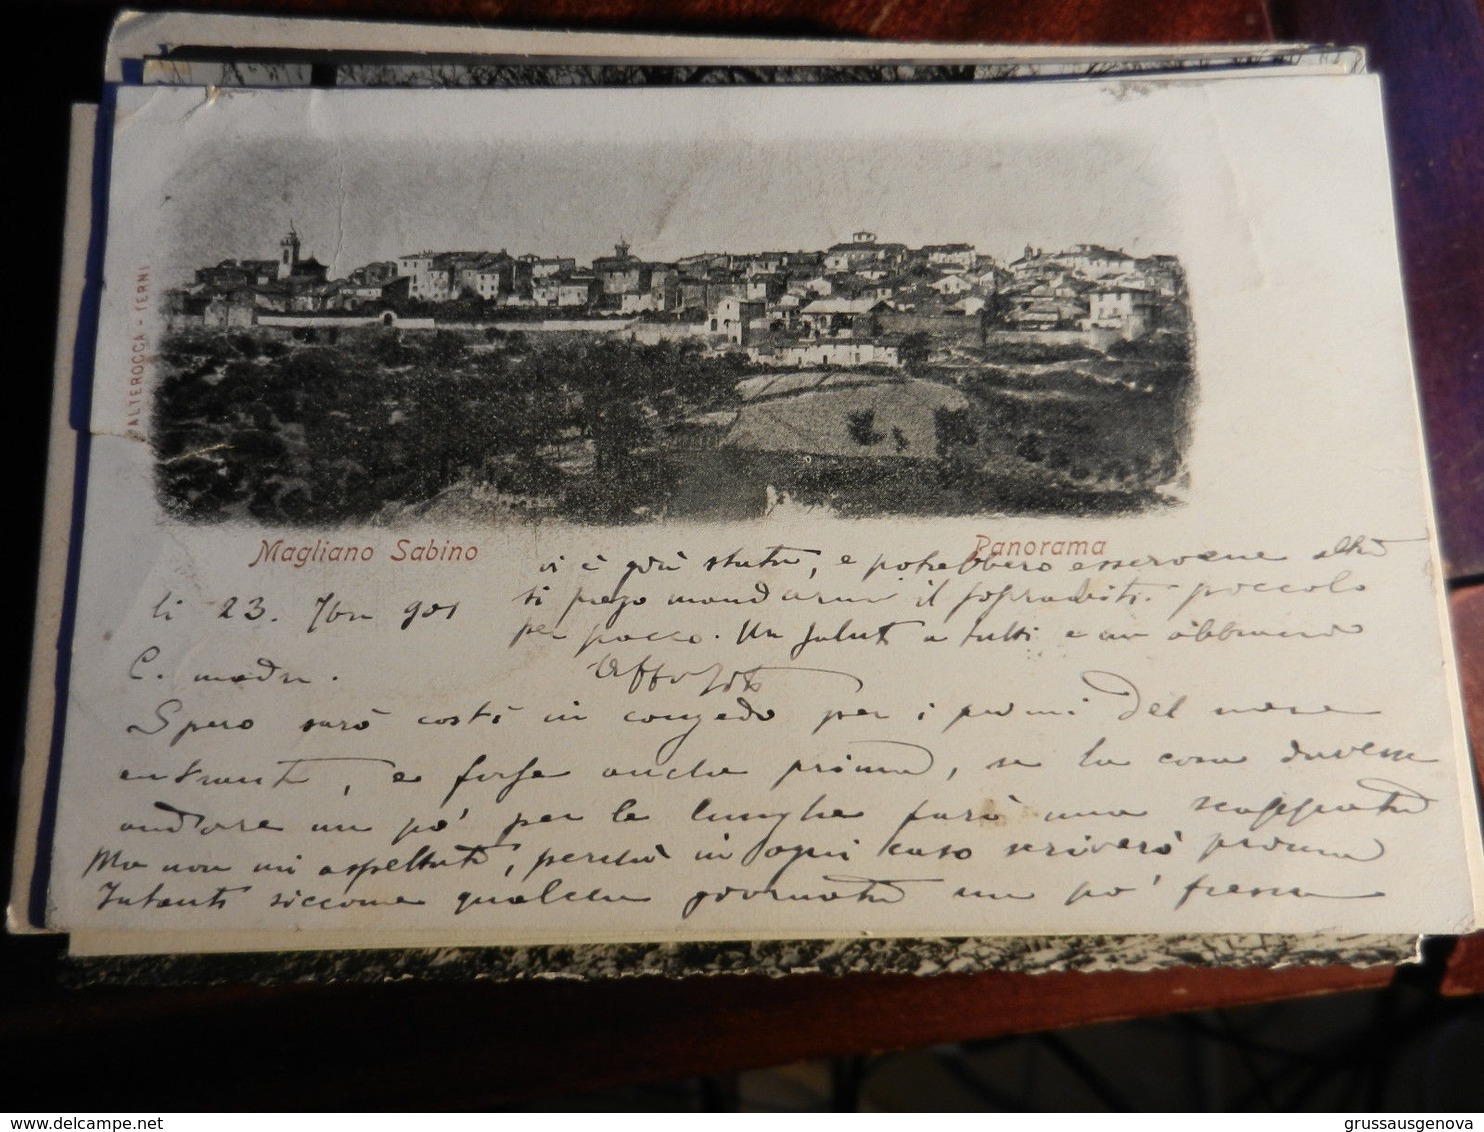 ALTEROCCA - TERNI
Magliano Sabino
Panorama
li 23. 7bre 901
C. madre.
Spero sarò costì in congedo per i primi del mese
entrante, e forse anche prima, se la cosa dovesse
andare un po' per le lunghe farò una scappata
Ma non mi aspettate, perchè in ogni caso scriverò prima
Intanto siccome qualche giornata un po' fresca
vi è già stata, e potrebbero esservene altre
ti prego mandarmi il soprabito piccolo
per pacco. Un saluto a tutti e un abbraccio
delcampe.net
grussausgenova